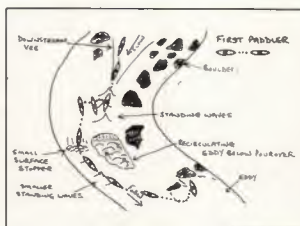 DOWNSTREAM
VEE
FLOW
FIRST PADDLER
BOULDER
STANDING WAVES
RECIRCULATING
EDDY BELOW POUROVER
SMALL
SURFACE
STOPPER
SMALLER
STANDING WAVES
FLOW
EDDY